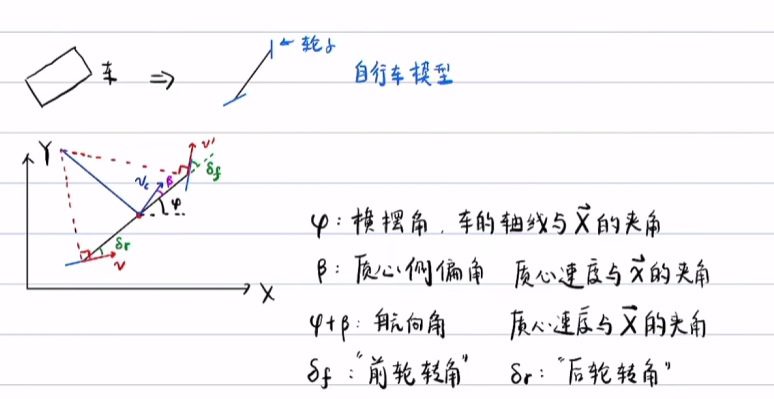 车 ⇒ ← 轮子
自行车模型
Y
v'
δf
vc
β
φ
δr
v
X
φ：横摆角，车的轴线与X⃗的夹角
β：质心侧偏角 质心速度与x⃗的夹角
φ+β：航向角 质心速度与X⃗的夹角
δf："前轮转角" δr："后轮转角"